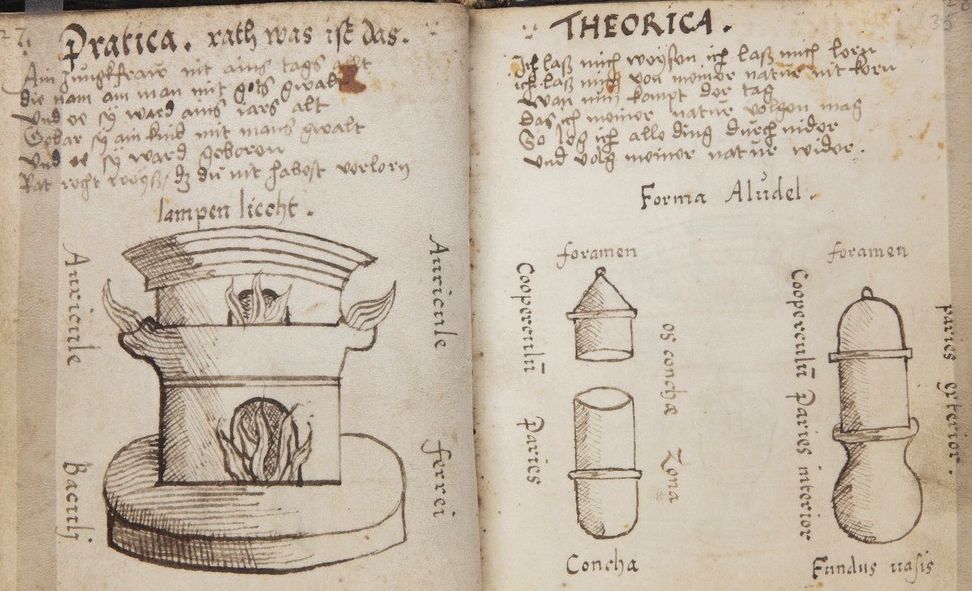 27.
Pratica. rath was ist das.
Ain Jungkfraw nit ains tags alt
die nam ain man mit gots gwalt
und ee sy ward ains iars alt
Gebar sy ain kind mit mans gwalt
und ee sy ward geborn
Rat recht weyß, dz du nit habest verlorn
lampen liecht.
Auricule
Auricule
Baculj
ferrei
THEORICA.
Ich laß mich weysen ich laß mich lern
ich laß mich von meiner natur nit kern
Wan nun kompt der tag
Das ich meiner natur volgen mag
So leg ich alle ding durch nider
und volg meiner natur wider.
Forma Alúdel.
foramen
Cooperculū
Paries
os conchæ
Zona
Concha
foramen
Cooperculū
Paries interior
paries exterior.
Fundus vasis